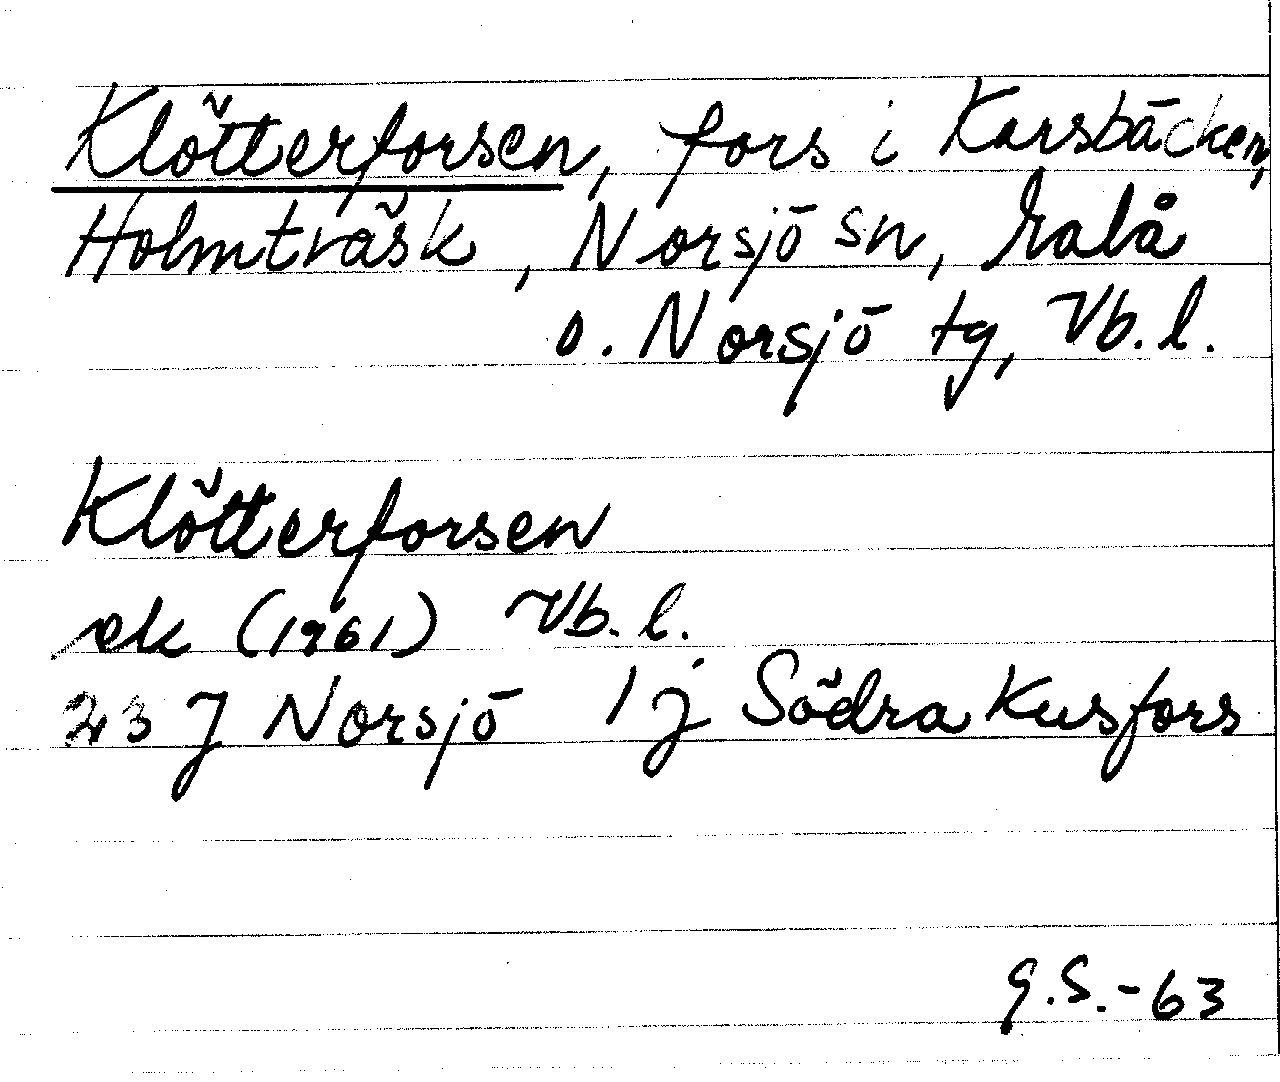 Klötterforsen, fors i Karsbäcken,
Holmträsk, Norsjö sn, Malå
o. Norsjö tg, Vb. l.
Klötterforsen
ek (1961) Vb. l.
23 J Norsjö 1 j Södra Kusfors
G.S.-63